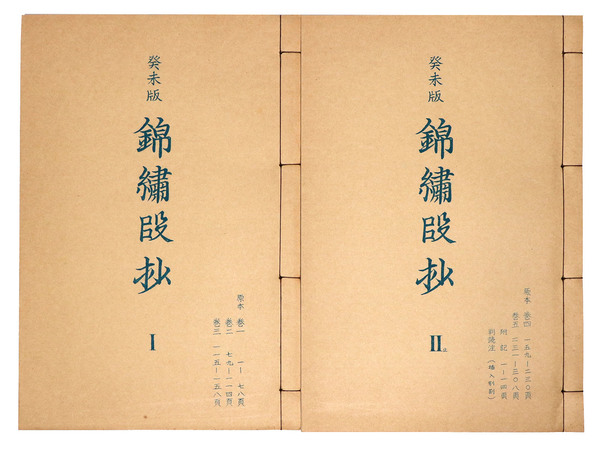 癸未版
錦繡段抄
I
原本 卷一 一-七八頁
卷二 七九-一一四頁
卷三 一一五-一五八頁
癸未版
錦繡段抄
II
原本 卷四 一五九-二三〇頁
卷五 二三一-三〇八頁
一-一四頁